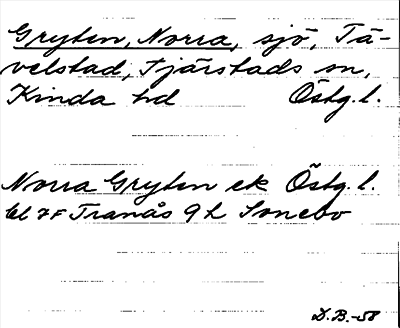 Gryten, Norra, sjö, Tä-
velstad, Tjärstads sn,
Kinda hd Östg. l.
Norra Gryten ek Östg. l.
bl 7F Tranås 9h Sonebo
D.B.-58